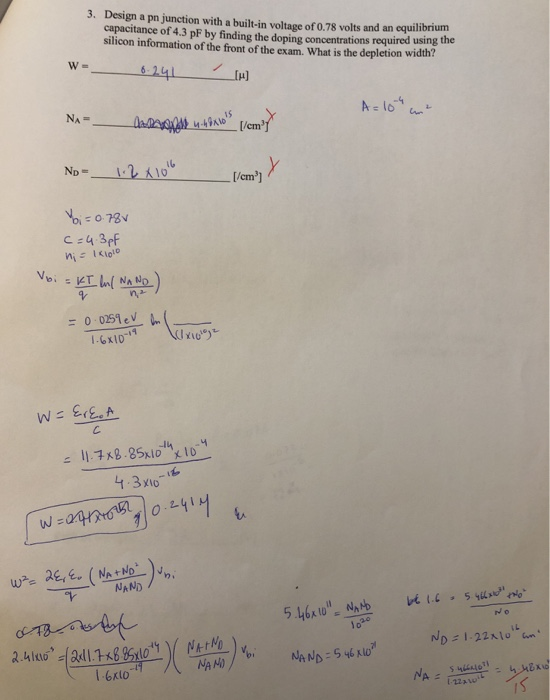 3. Design a pn junction with a built-in voltage of 0.78 volts and an equilibrium
capacitance of 4.3 pF by finding the doping concentrations required using the
silicon information of the front of the exam. What is the depletion width?
W = 0.241 [μ]
A = 10^-4 cm^2
NA = 4.48x10^15 [/cm^3]
ND = 1.2 x10^16 [/cm^3]
Vbi = 0.78v
C = 4.3pf
ni = 1x10^10
Vbi = KT/q ln(NAND/ni^2)
= 0.0259eV/1.6x10^-19 ln( /(1x10^10)^2
W = εrεoA/C
= 11.7x8.85x10^-14x10^-4/4.3x10^-12
W = 0.241μ
W^2 = 2εrεo/q (NA+ND/NAND) Vbi
2.41x10^-5 = (2x11.7x8.85x10^-14/1.6x10^-19)(NA+ND/NAND) Vbi
5.46x10^11 = NAND/10^20
NAND = 5.46x10^31
ND = 1.22x10^16 cm^-3
NA = 5.466x10^31/1.22x10^16 = 4.48x10^15